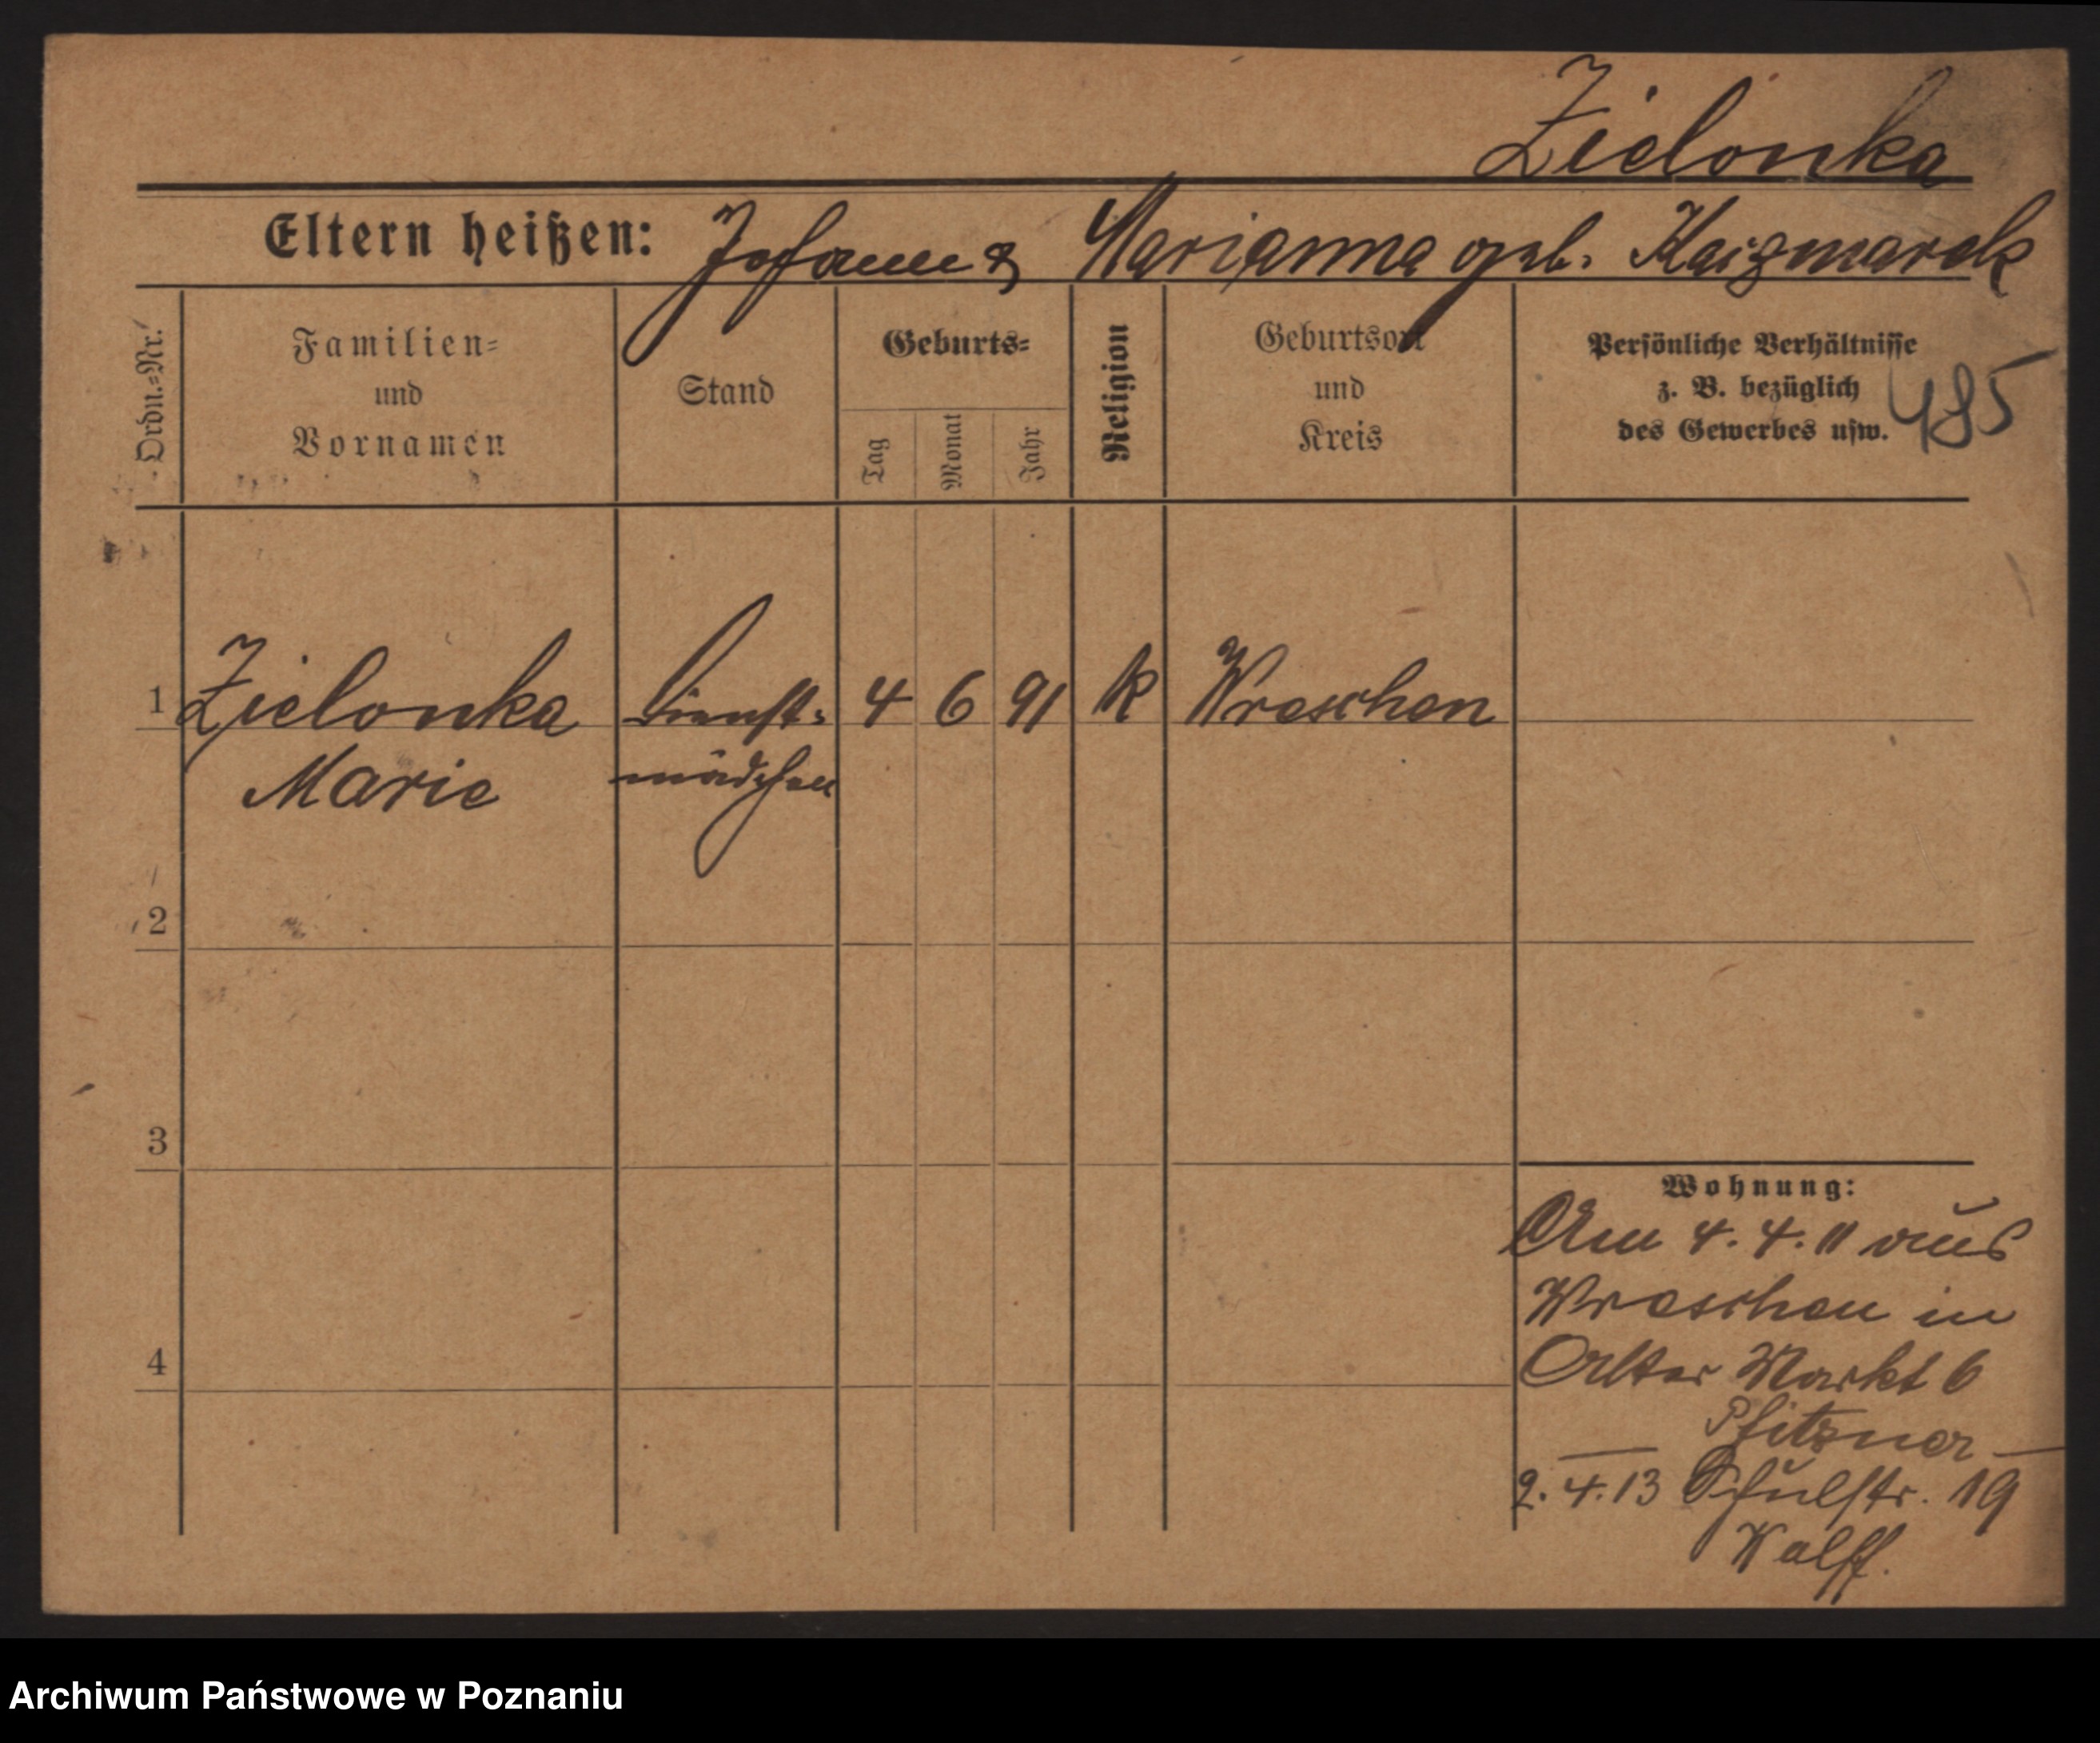 Zielonka
Eltern heißen: Johann & Marianna geb. Kaizmarek
Ordn.=Nr.
Familien=
und
Vornamen
Stand
Geburts=
Tag
Monat
Jahr
Religion
Geburtsort
und
Kreis
Persönliche Verhältnisse
z. B. bezüglich
des Gewerbes usw.
485
1 Zielonka Dienst= 4 6 91 k Wreschen
Marie mädchen
2
3
4
Wohnung:
Am 4.4.11 aus
Wreschen in
Alter Markt 6
Pfitzner —
2.4.13 Schulstr. 19
Wolff.
Archiwum Państwowe w Poznaniu